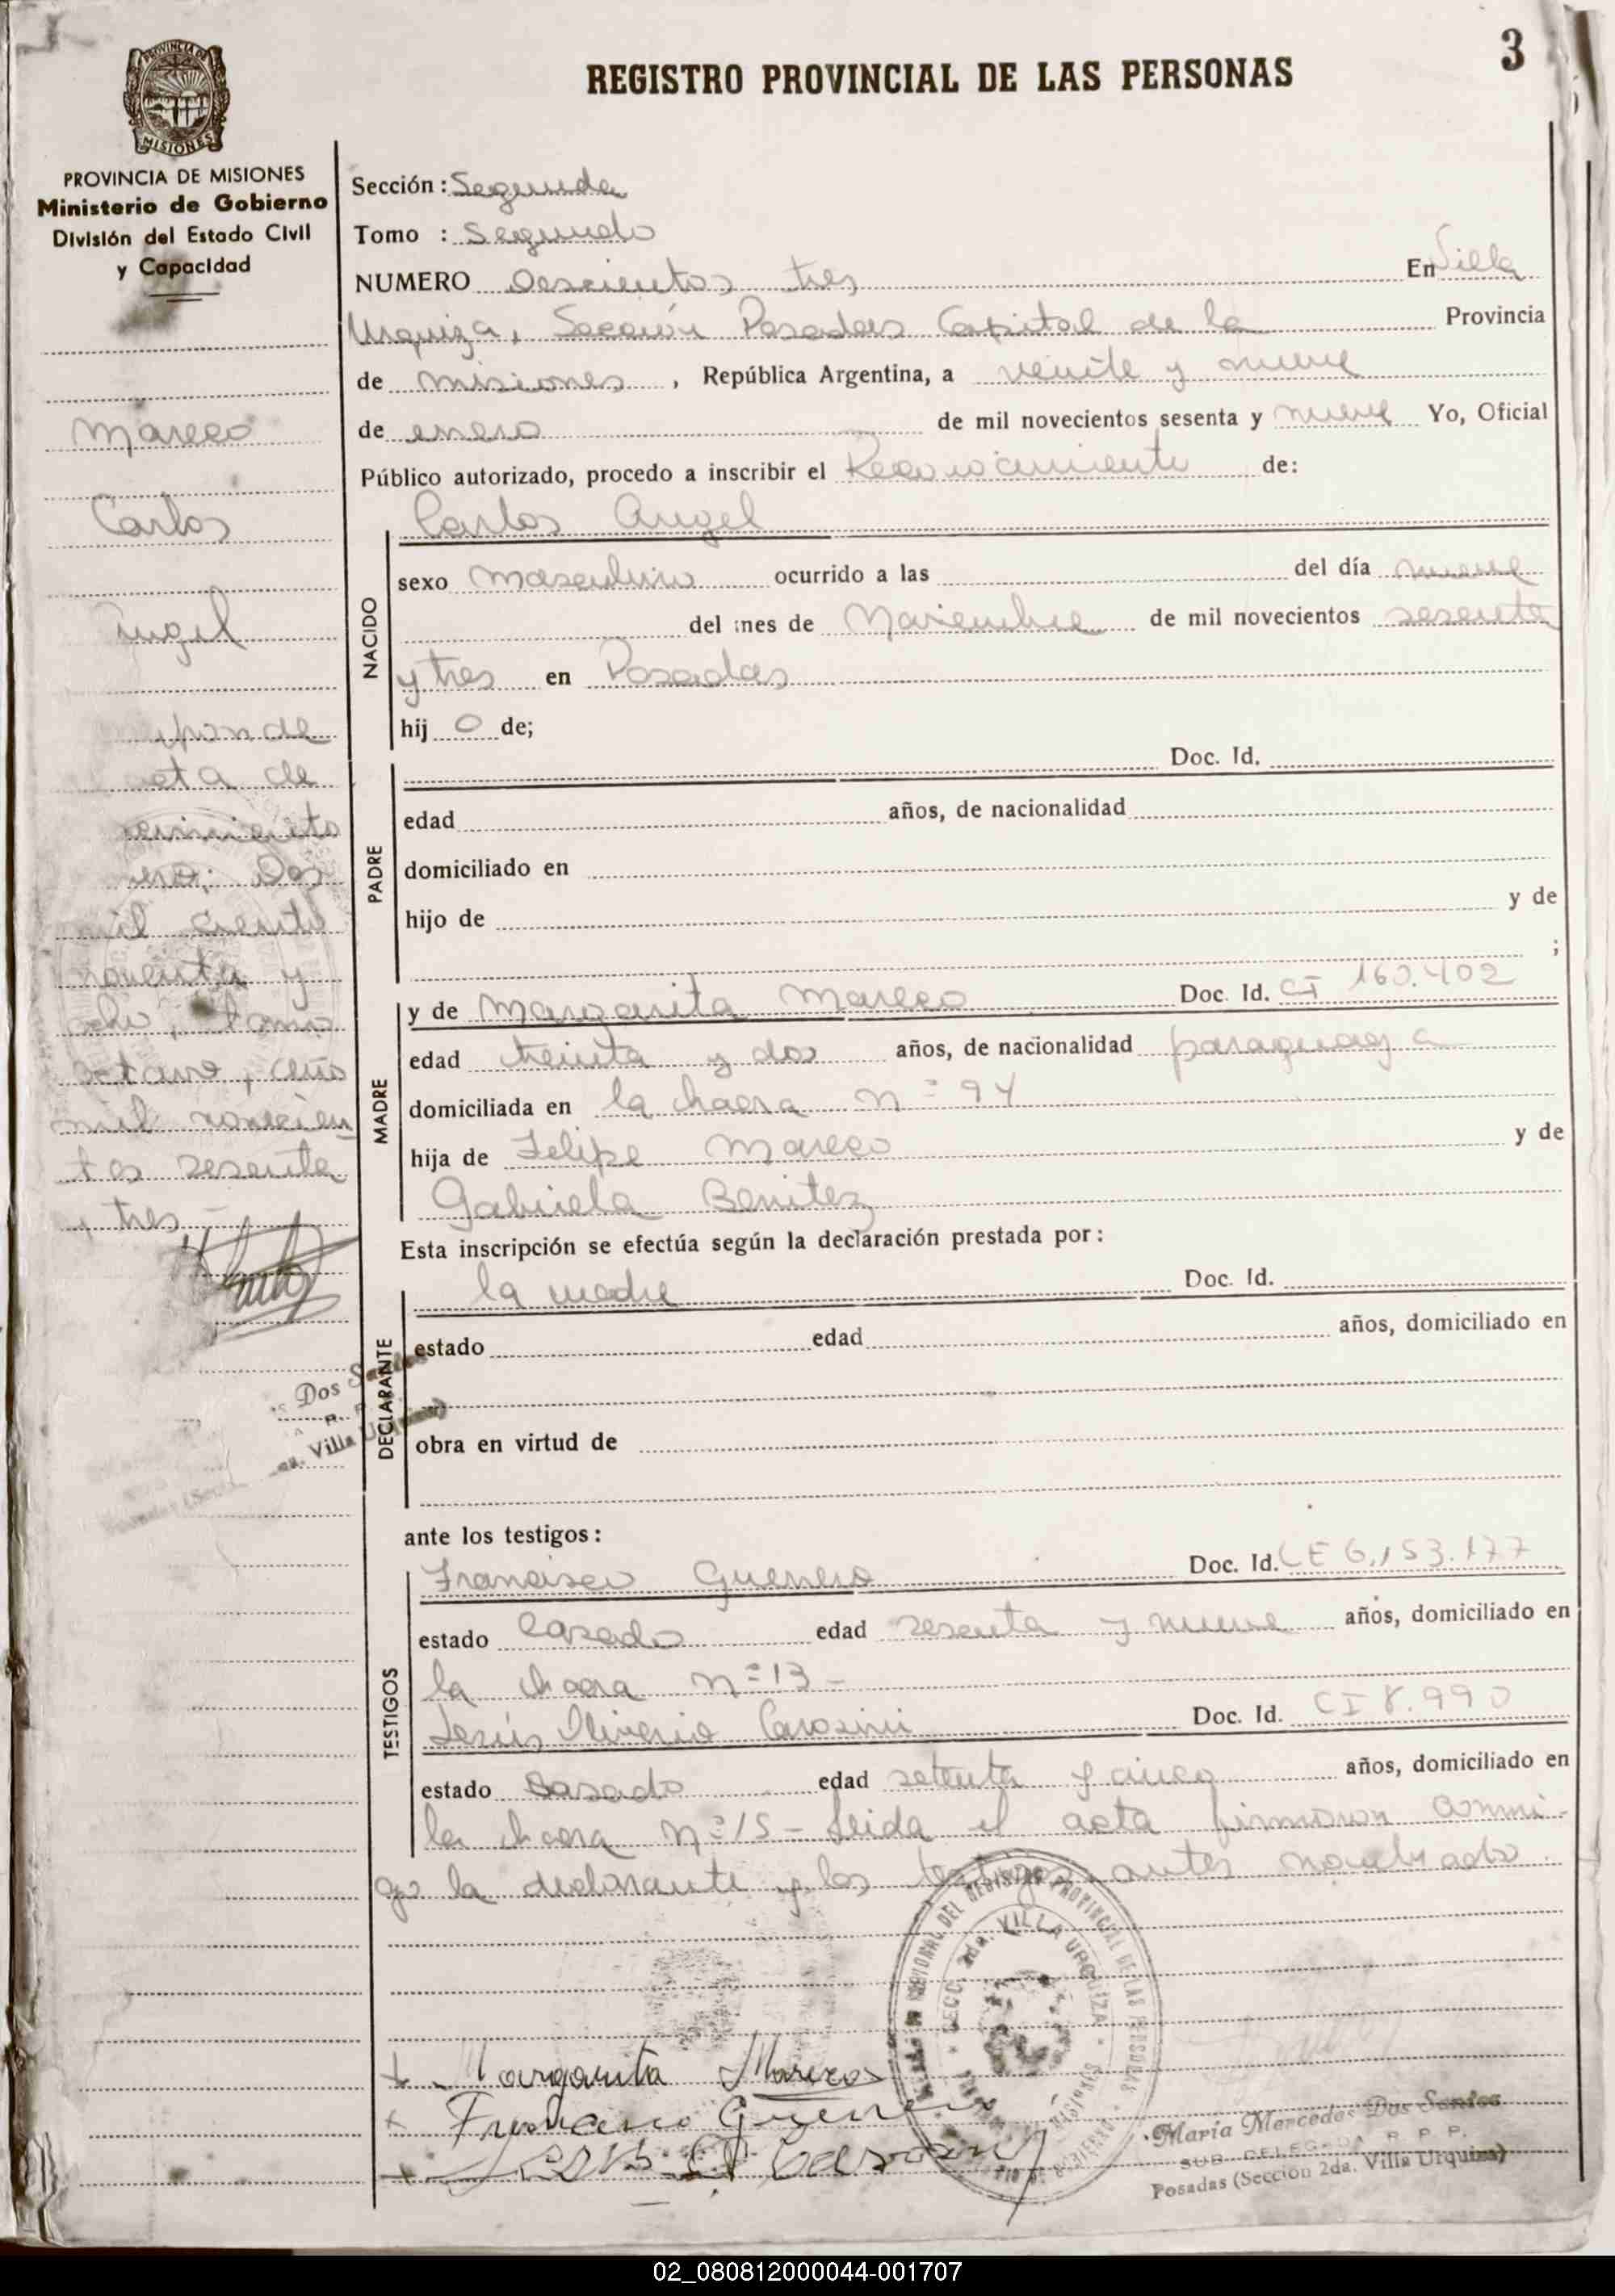 3
REGISTRO PROVINCIAL DE LAS PERSONAS
PROVINCIA DE
MISIONES
PROVINCIA DE MISIONES
Ministerio de Gobierno
División del Estado Civil
y Capacidad
Mareco
Carlos
Angel
ponde
acta de
Dos
mil ciento
noventa y
ocho, tomo
octavo, año
mil novecien
tos sesenta
y tres -
Dos Santos
Villa Urquiza)
Sección : Segunda
Tomo : Segundo
NUMERO Doscientos tres En Villa
Urquiza, Sección Posadas Capital de la Provincia
de misiones, República Argentina, a veinte y nueve
de enero de mil novecientos sesenta y nueve Yo, Oficial
Público autorizado, procedo a inscribir el Reconocimiento de:
Carlos Angel
NACIDO
sexo masculino ocurrido a las del día nueve
del mes de Noviembre de mil novecientos sesenta
y tres en Posadas
hij o de;
PADRE
Doc. Id.
edad años, de nacionalidad
domiciliado en
hijo de y de
;
MADRE
y de Margarita Mareco Doc. Id. CI 160.402
edad treinta y dos años, de nacionalidad paraguaya
domiciliada en la chacra n° 94
hija de Felipe Mareco y de
Gabriela Benitez
Esta inscripción se efectúa según la declaración prestada por :
DECLARANTE
la madre Doc. Id.
estado edad años, domiciliado en
obra en virtud de
ante los testigos :
TESTIGOS
Francisco Guerrero Doc. Id. CE 6.153.177
estado Casado edad sesenta y nueve años, domiciliado en
la chacra n° 13 -
Jesús Oliverio Doc. Id. CI 8.990
estado Casado edad setenta y cinco años, domiciliado en
la chacra n° 15 - Leida el acta firmaron conmi-
go la declarante y los testigos antes nombrado.
SECC. 2da. VILLA URQUIZA
REGIONAL DEL REGISTRO PROVINCIAL DE LAS PERSONAS
Margarita Mareco
Francisco Guerrero
María Mercedes Dos Santos
SUB DELEGADA R. P. P.
Posadas (Sección 2da. Villa Urquiza)
02_080812000044-001707